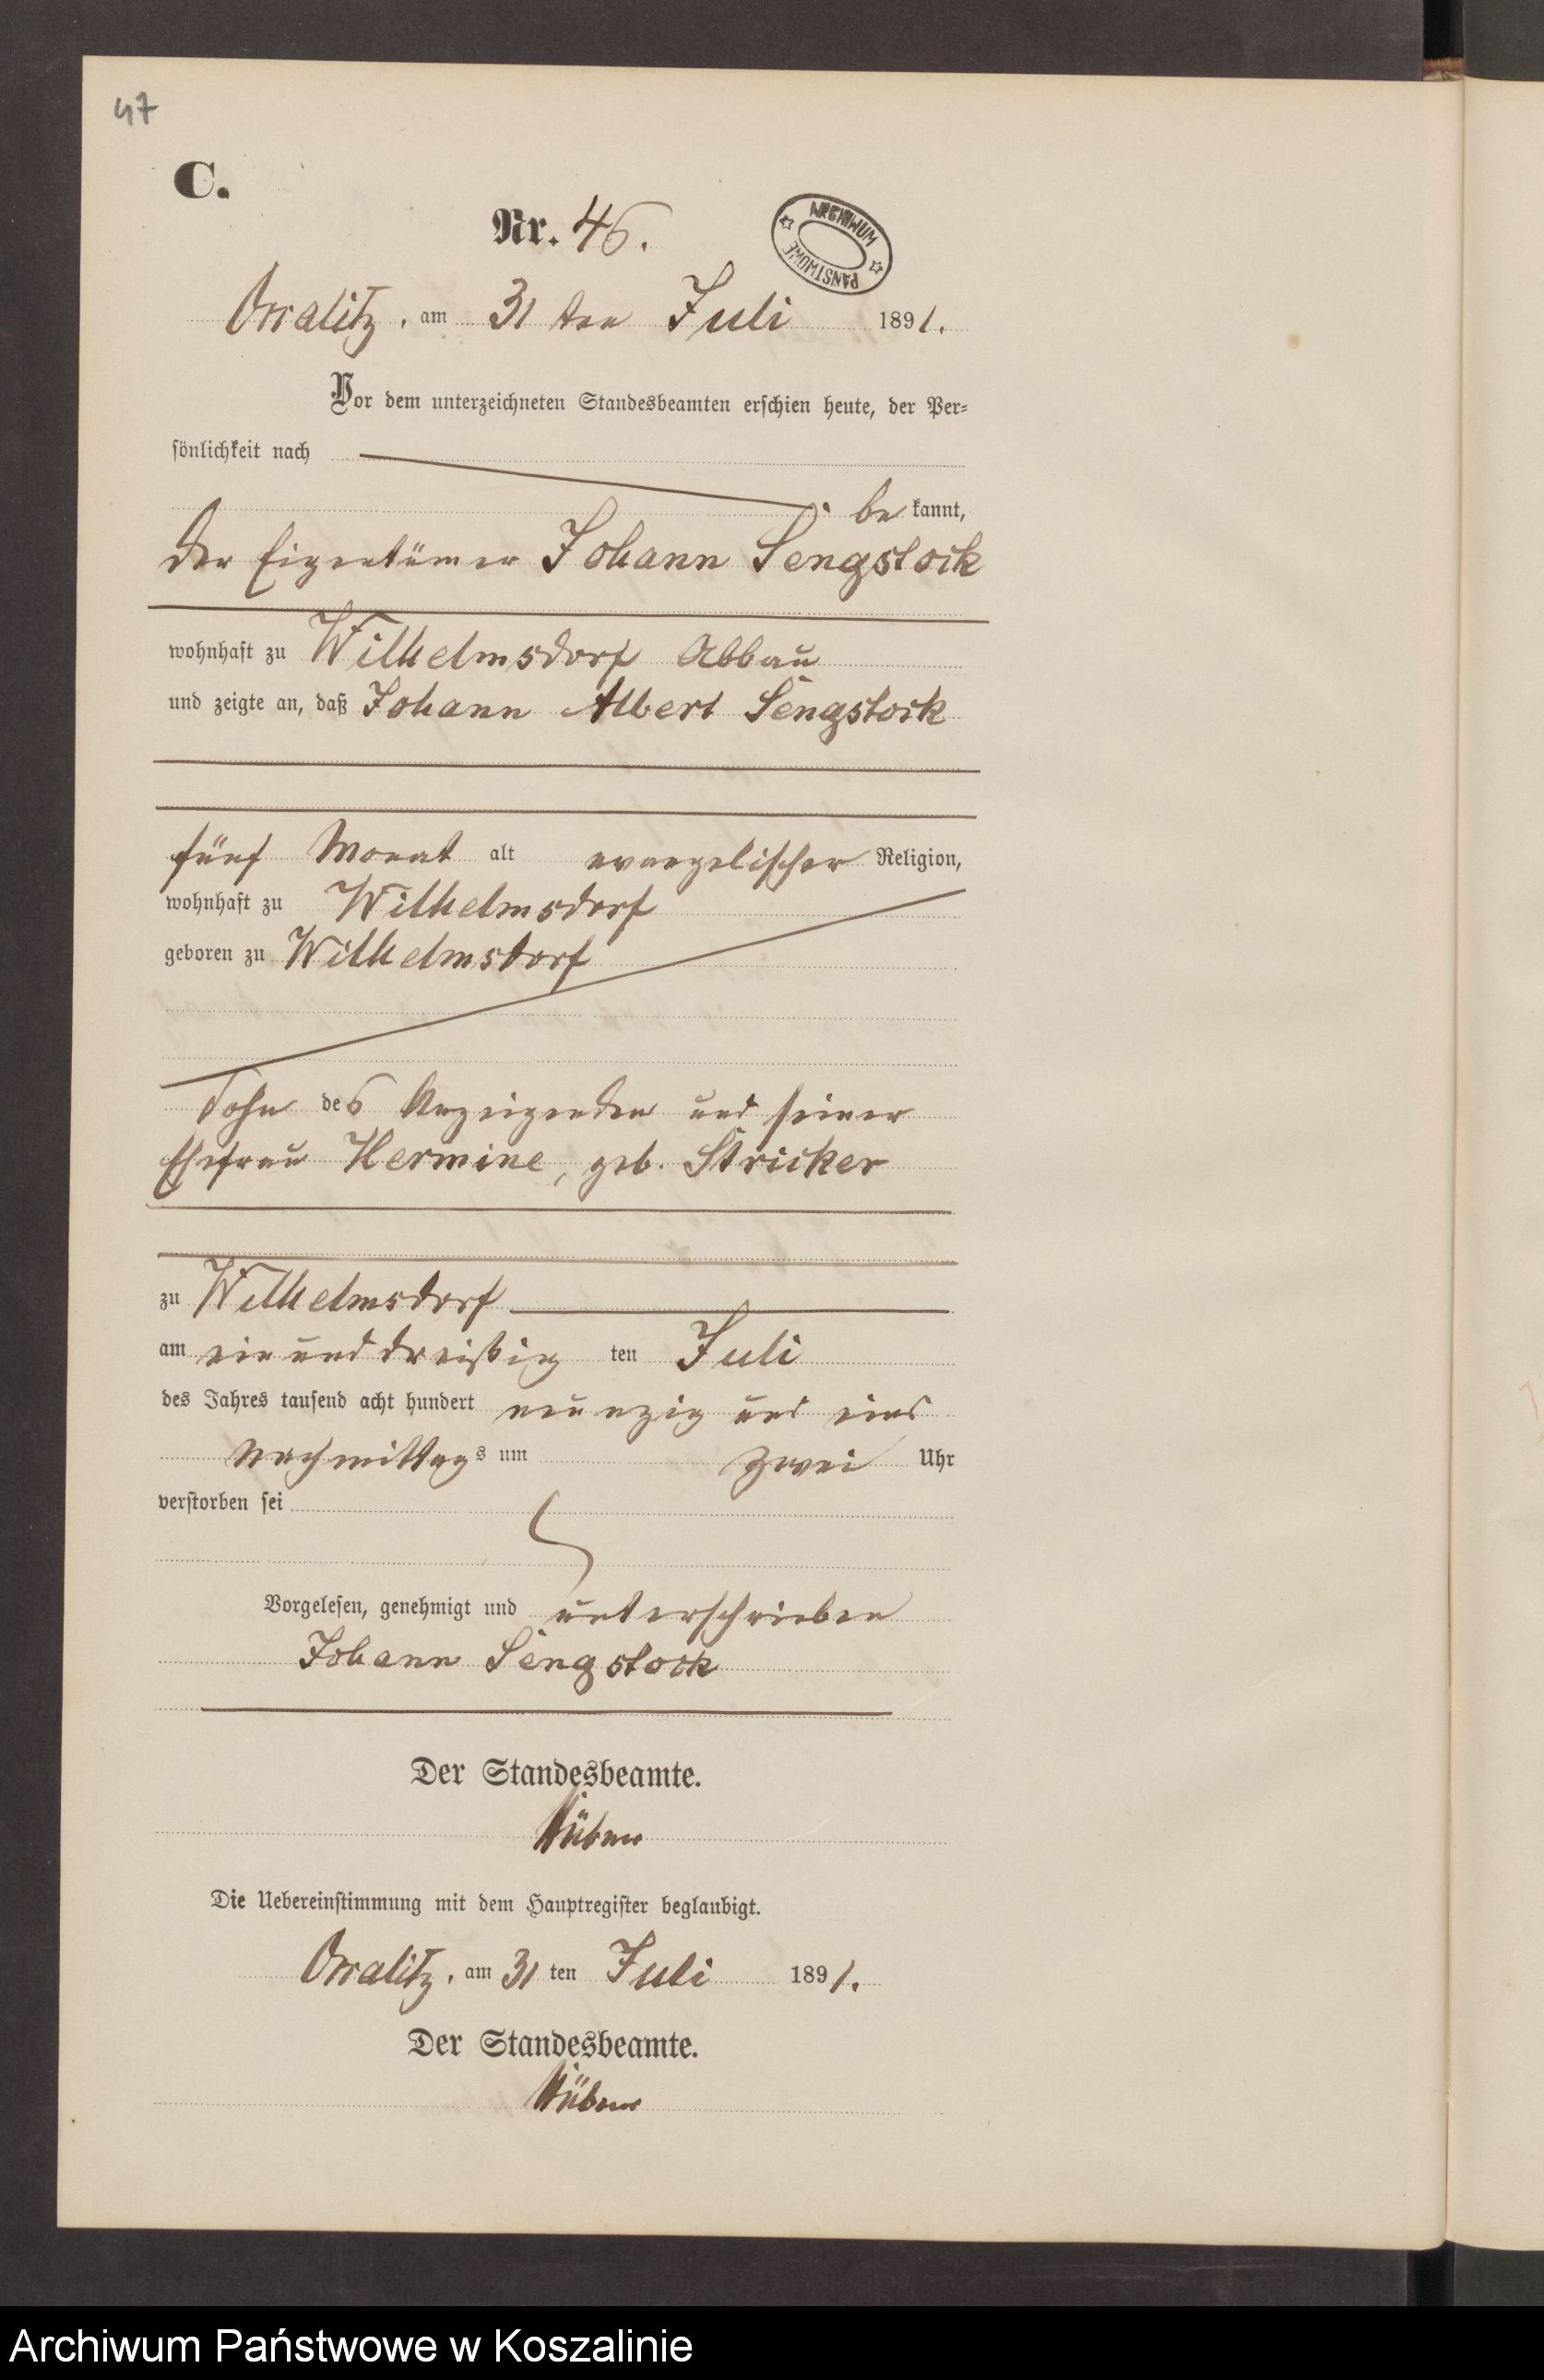 47
C.
Nr. 46.
ARCHIWUM PAŃSTWOWE
am 31 ten Juli 1891.
Vor dem unterzeichneten Standesbeamten erschien heute, der Per-
sönlichkeit nach
be kannt,
der Eigentümer Johann Sengstock
wohnhaft zu Wilhelmsdorf Abbau
und zeigte an, daß Johann Albert Sengstock
fünf Monat alt evangelischer Religion,
wohnhaft zu Wilhelmsdorf
geboren zu Wilhelmsdorf
Sohn des Anzeigenden und seiner
Ehefrau Hermine, geb. Stricker
zu Wilhelmsdorf
am ein und dreißig ten Juli
des Jahres tausend acht hundert neunzig und eins
Nachmittags um zwei Uhr
verstorben sei
Vorgelesen, genehmigt und unterschrieben
Johann Sengstock
Der Standesbeamte.
Die Uebereinstimmung mit dem Hauptregister beglaubigt.
am 31 ten Juli 1891.
Der Standesbeamte.
Archiwum Państwowe w Koszalinie